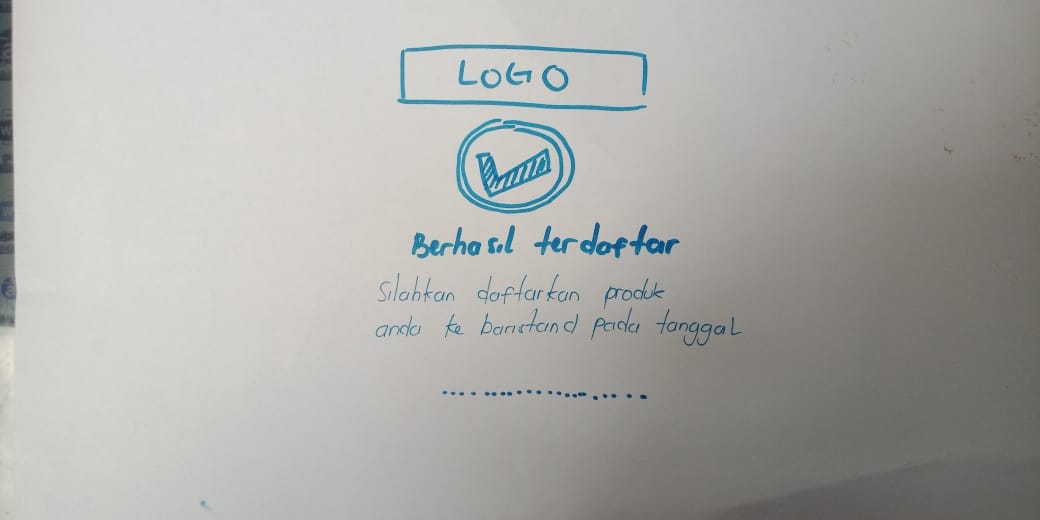 LOGO
Berhasil terdaftar
Silahkan daftarkan produk
anda ke baristand pada tanggal
....................